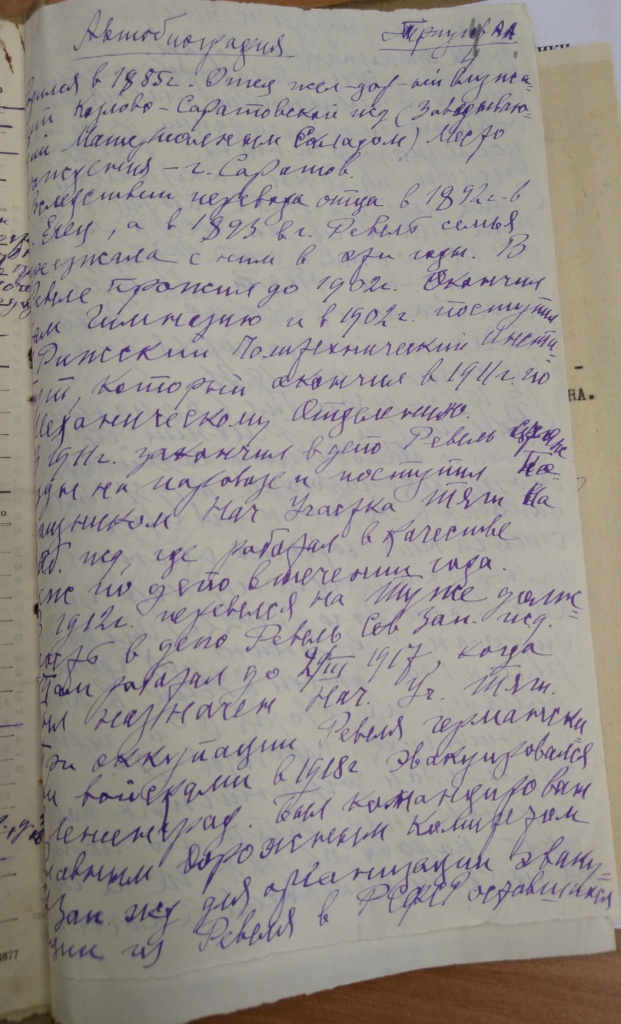 Автобиография
одился в 1885г. Отец жел-дор-ный служа-
щий Козлово-Саратовской жд (Заведываю-
ий Материальным Складом) Место
ождения - г. Саратов.
вследствии перевода отца в 1892г. в
. Елец, а в 1893 в г. Ревель семья
реезжала с ним в эти годы. В
Ревеле прожил до 1902г. Окончил
там Гимназию и в 1902г. поступил
Рижский Политехнический Инсти-
тут, который окончил в 1911г. по
Механическому Отделению.
1911г. закончил в депо Ревель
езды на паровозе и поступил По-
ощником Нач Участка Тяги на
жд, где работал в качестве
по депо в течении года.
В 1912г. перевелся на туже долж-
ость в депо Ревель Сев Зап. жд.
Там работал до 29/III 1917, когда
ыл назначен Нач. Уч. Тяги.
При оккупации Ревеля германски
и войсками в 1918г эвакуировался
Ленинград. Был командирован
лавным Дорожным Комитетом
Зап. жд для организации эваку-
ции из Ревеля в РСФСР оставшихся
НА.
1877